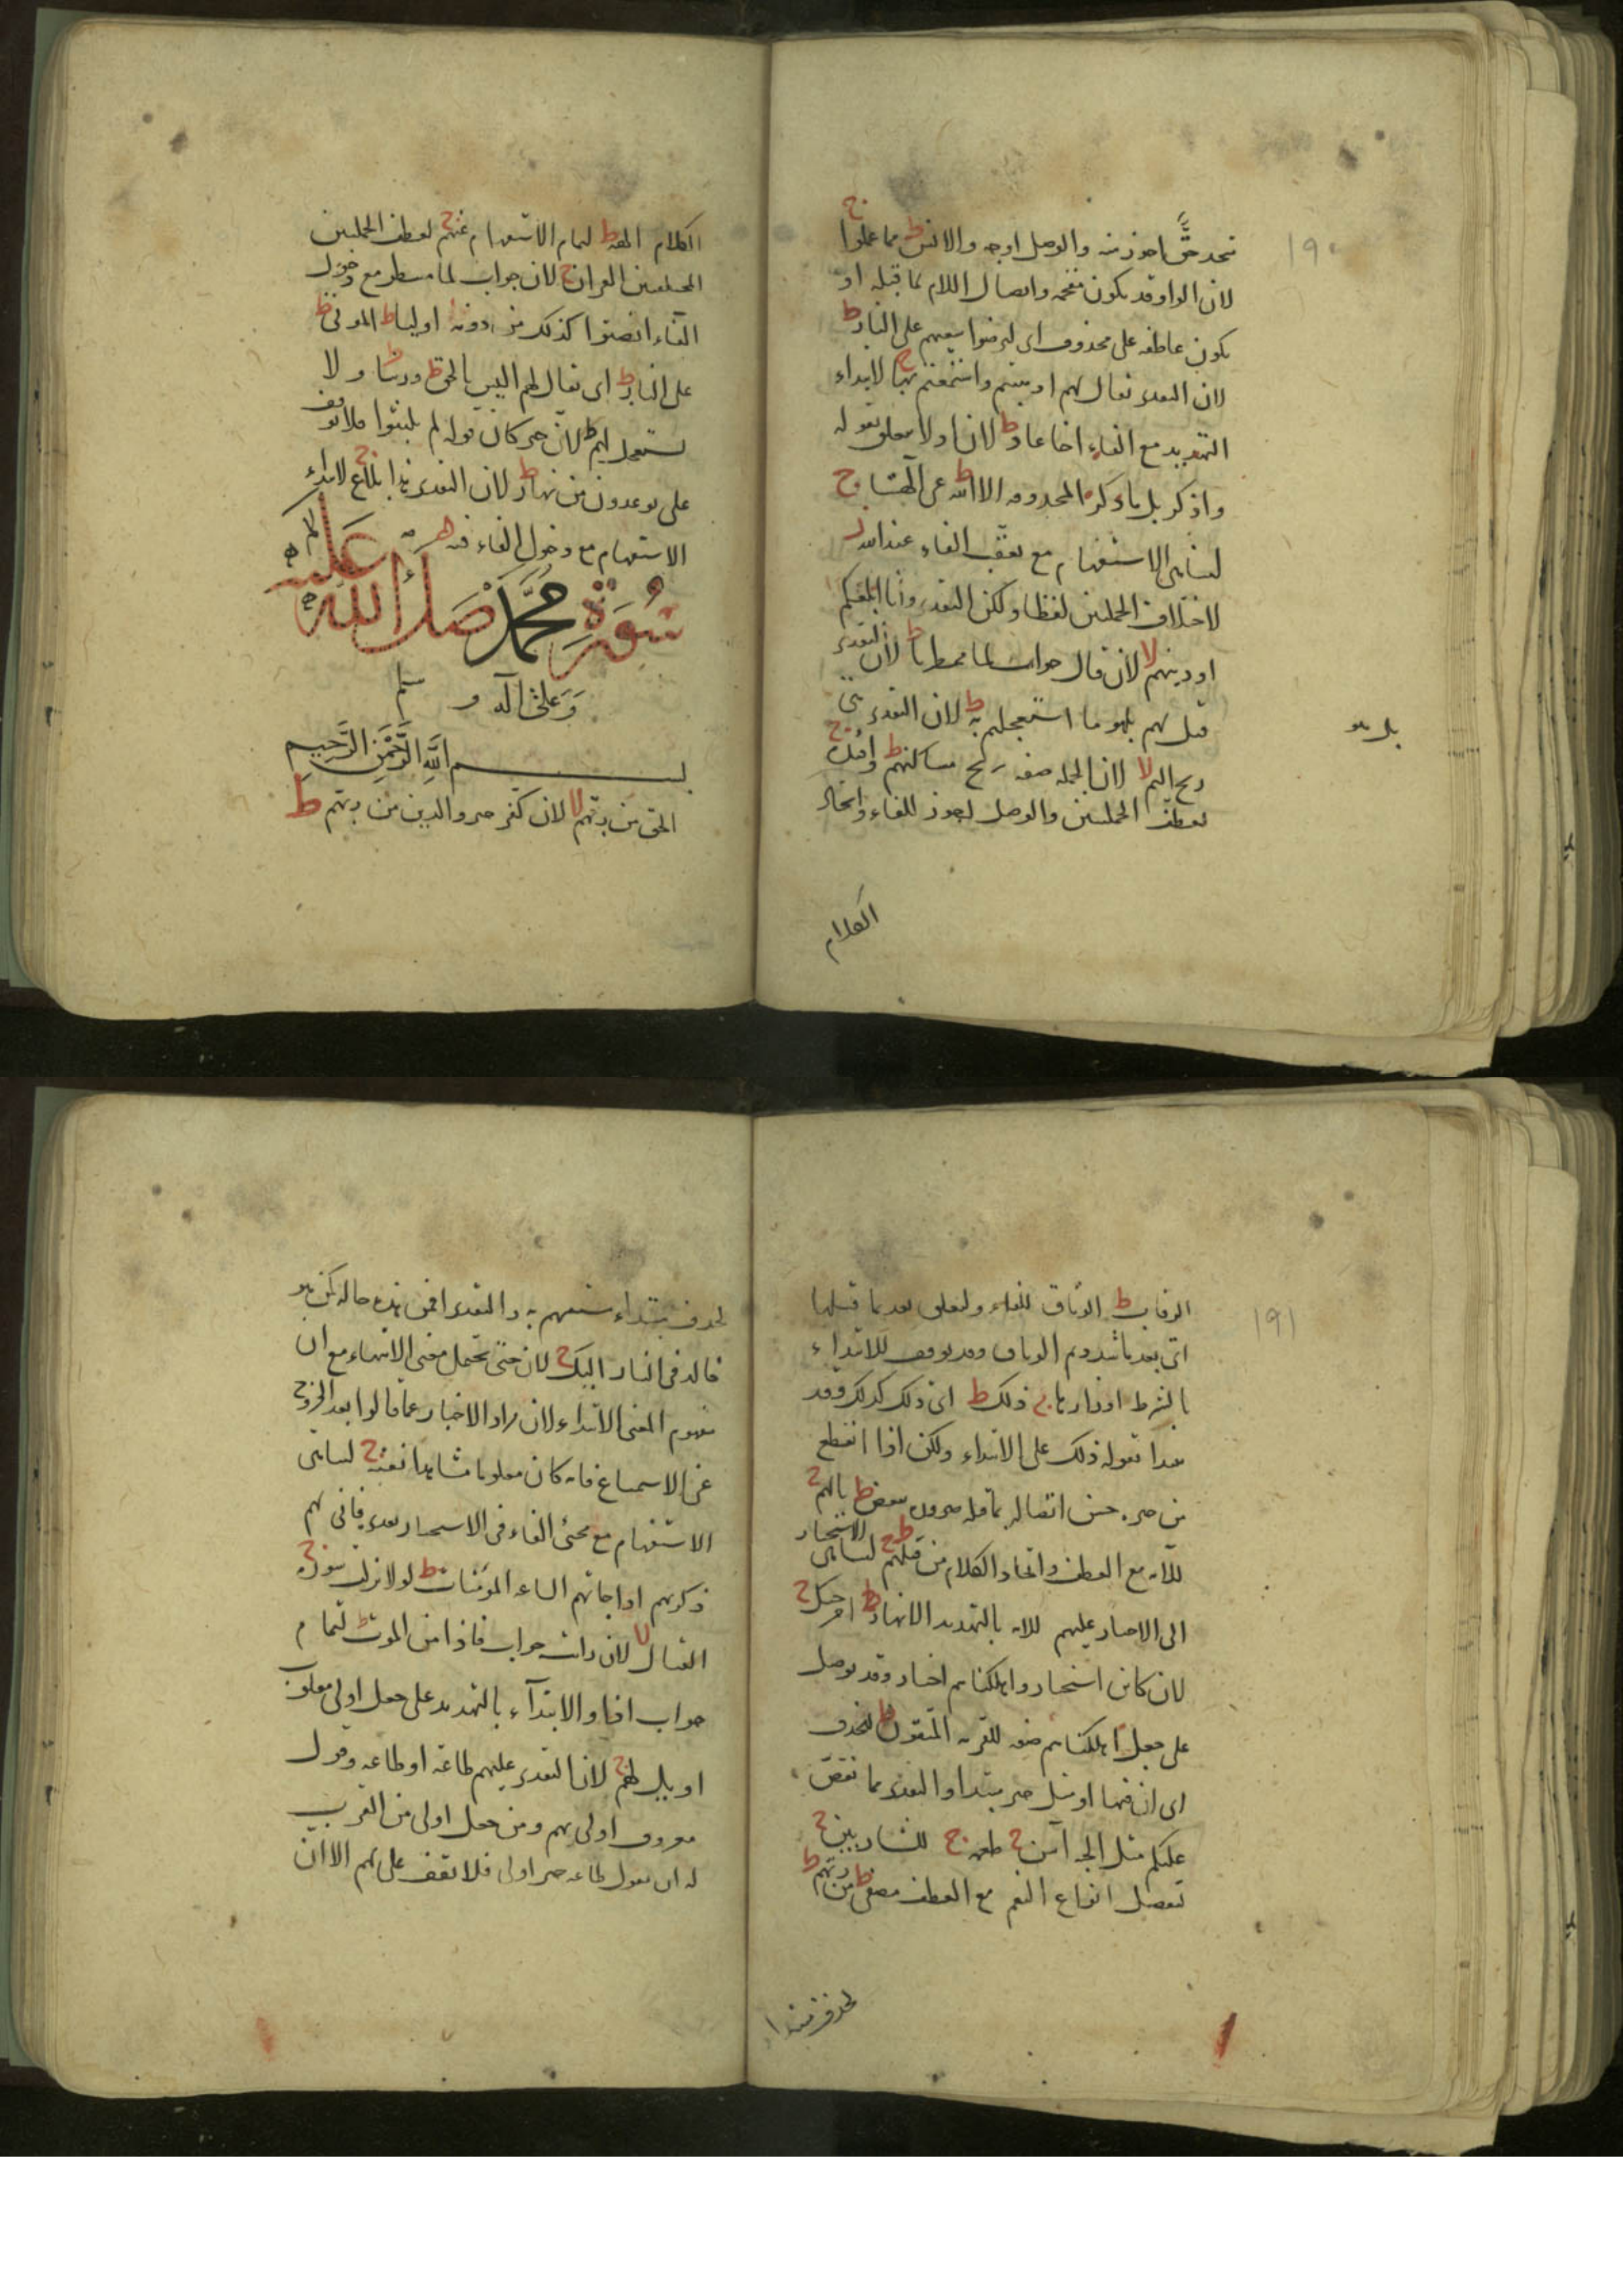 ١٩٠
حق احوز منه والوصل اوجه والانس ط مما عملوا ج
لان الواو قد يكون مقحمه واتصال اللام بما قبله او
يكون عاطفه على محذوف اى ليعهم على النار ط
لان التقدير يقال لهم اذهبتم واستمتعتم بها ج لابتداء
التهديد مع الفاء اخا عاد ط لان اذ لا يتعلق بقوله
واذكر بل باذكر المحذوفه الا الله ط عن آلهتنا ج
لتناهى الاستفهام مع تعقب الفاء عند الله ز
لاختلاف الجملتين لفظا ولكن التقدير وانا ابلغكم
اوديتهم لا لان قال جواب لما ممطرنا ط لان التقدير
قيل لهم بل هو ما استعجلتم به ط لان التقدير هى
بل هو
ريح اليم لا لان الجمله صفه ريح مساكنهم ط وافئدة ج
لعطف الجملتين والوصل اجوز للفاء واتحاد
الكلام
الكلام الهة ط لتمام الاستفهام عنهم ج لعطف الجملتين
المختلفتين القران ج لان جواب لما منتظر مع دخول
الفاء انصتوا كذلك من دونه اولياء ط الموتى ط
على النار ط اى يقال لهم اليس بالحق ط وربنا ط ولا
تستعجل لهم ط لان خبر كان قوله لم يلبثوا فلا وقف
على يوعدون من نهار ط لان التقدير هذا بلاغ ج لابتداء
الاستفهام مع دخول الفاء فيه
سورة محمد صلى الله عليه
وعلى آله وسلم
بسم الله الرحمن الرحيم
الحق من ربهم لا لان كفر خبر والذين من ربهم ط
١٩١
الرقاب ط الوثاق للفاء ولتعلق بعد بما قبلها
اى بعد ما شددتم الوثاق وقد يوقف للابتداء
بالشرط اوزارها ج ذلك ط اى ذلك كذلك وقد
يبدا بقوله ذلك على الابتداء ولكن اذا انقطع
من خبره حسن اتصاله بما قبله ببعض ط بالهم ج
للآيه مع العطف واتحاد الكلام من قبلهم ط لتناهى الاستخبار
الى الاخبار عليهم للآيه بالتهديد الانهار ط اخرجتك ج
لان كاين استخبار واهلكناهم اخبار وقد يوصل
على جعل اهلكناهم صفه للقريه المتقون ط لحذف
اى ان فيها او مثل خبر مبتدا والتقدير مما نقص
عليكم مثل الجنه آسن ج طعمه ج للشاربين ج
تفصيل انواع النعم مع العطف مصفى ط من ربهم ط
لحذف مبتدا
لحذف مبتداء يستفهم به والتقدير افمن هذه حاله كمن هو
خالد فى النار اليك ج لان حتى يحتمل معنى الانتهاء مع ان
مفهوم المعنى الابتداء لان مراد الاخبار عما قالوا بعد الخروج
عن الاستماع فانه كان معلوما مشاهدا بغتة ج لتناهى
الاستفهام مع مجئ الفاء فى الاستخبار بعده فانى لهم
ذكريهم اذا جاتهم الساعه المومنات ط لولا نزلت سورة ج
القتال لا لان رايت جواب فاذا من الموت ط لتمام
جواب اذا والابتدآء بالتهديد على جعل اولى مقلوب
او يل لهم ج لان التقدير عليهم طاعة او طاعه وقول
معروف اولى بهم ومن جعل اولى من القرب
له ان يقول طاعه خبر اولى فلا تقف على لهم الا ان